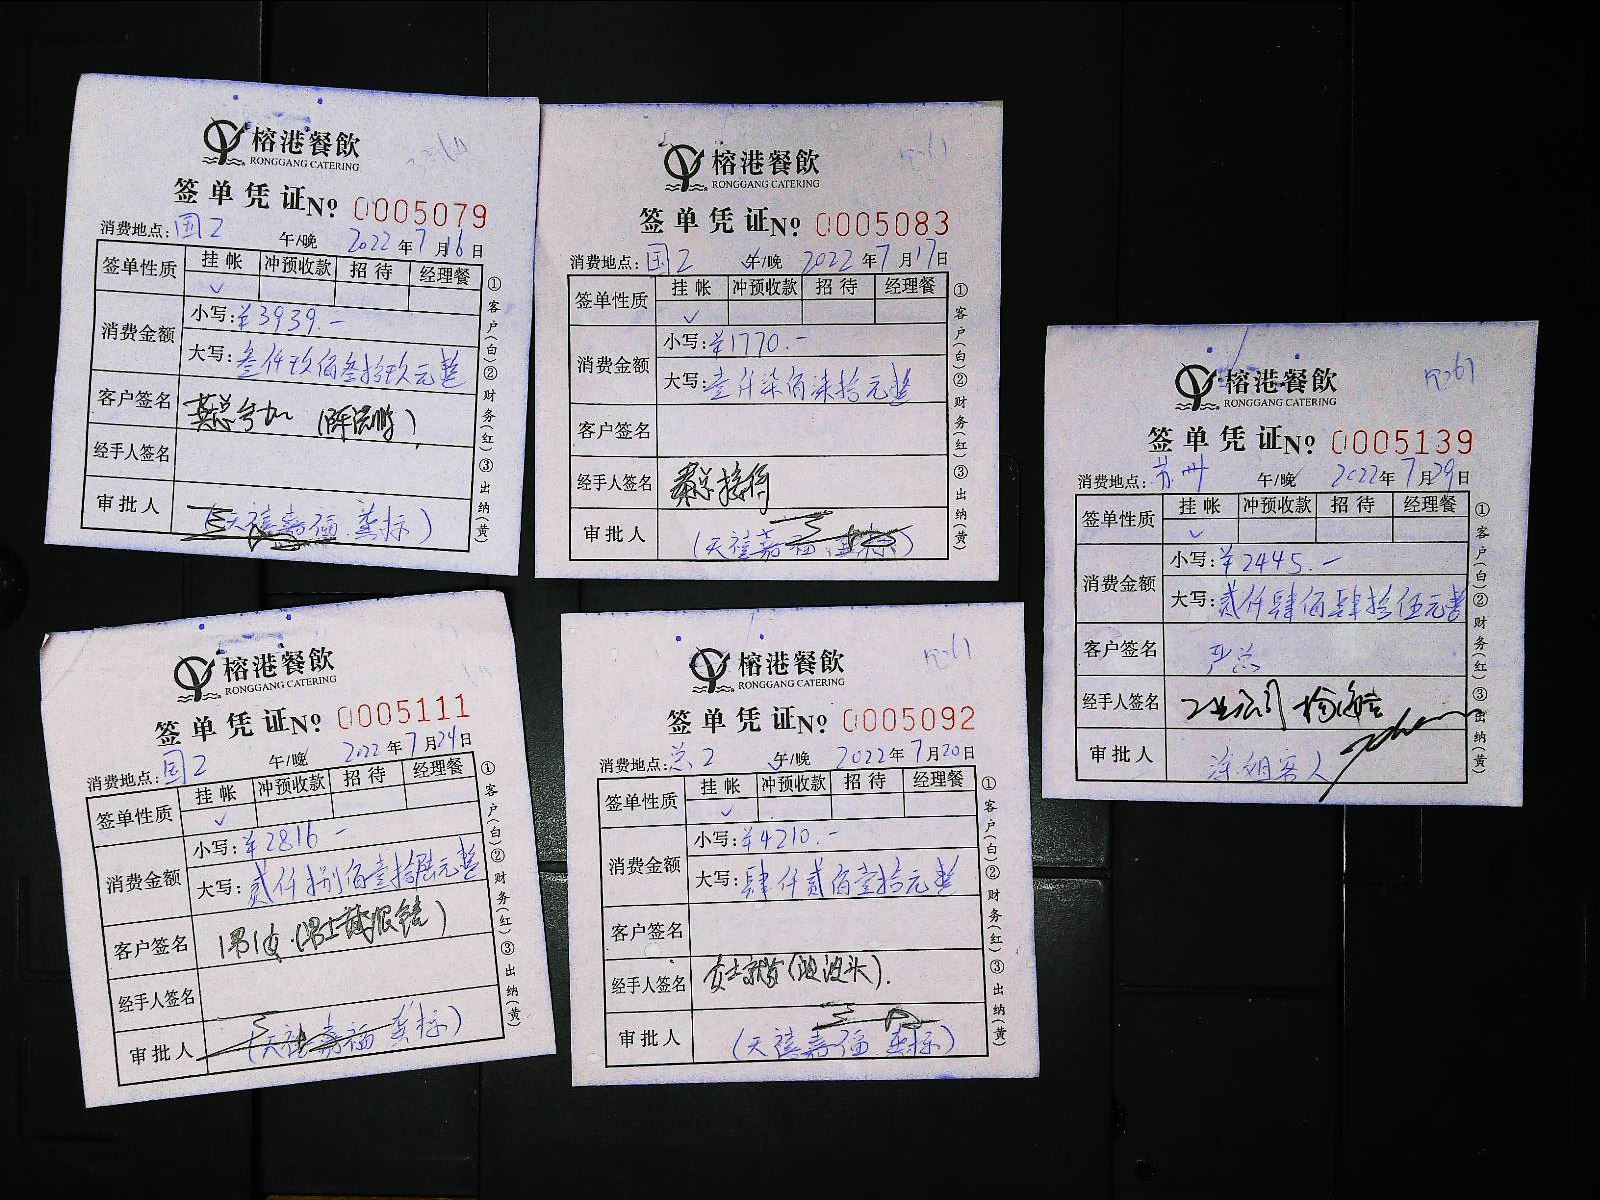 榕港餐飲
RONGGANG CATERING
签单凭证№ 0005079
消费地点:国2 午/晚 2022年7月16日
签单性质 挂帐 冲预收款 招待 经理餐
✓
消费金额 小写:¥3939.-
大写:叁仟玖佰叁拾玖元整
客户签名
经手人签名
审批人 (天禧嘉福 龚标)
①客户(白)②财务(红)③出纳(黄)
榕港餐飲
RONGGANG CATERING
签单凭证№ 0005083
消费地点:国2 午/晚 2022年7月17日
签单性质 挂帐 冲预收款 招待 经理餐
✓
消费金额 小写:¥1770.-
大写:壹仟柒佰柒拾元整
客户签名
经手人签名 龚总接待
审批人 (天禧嘉福 龚标)
①客户(白)②财务(红)③出纳(黄)
榕港餐飲
RONGGANG CATERING
签单凭证№ 0005139
消费地点:苏州 午/晚 2022年7月29日
签单性质 挂帐 冲预收款 招待 经理餐
✓
消费金额 小写:¥2445.-
大写:贰仟肆佰肆拾伍元整
客户签名 严总
经手人签名
审批人 客人
①客户(白)②财务(红)③出纳(黄)
榕港餐飲
RONGGANG CATERING
签单凭证№ 0005111
消费地点:国2 午/晚 2022年7月24日
签单性质 挂帐 冲预收款 招待 经理餐
✓
消费金额 小写:¥2816-
大写:贰仟捌佰壹拾陆元整
客户签名
经手人签名
审批人 (天禧嘉福 龚标)
①客户(白)②财务(红)③出纳(黄)
榕港餐飲
RONGGANG CATERING
签单凭证№ 0005092
消费地点:总2 午/晚 2022年7月20日
签单性质 挂帐 冲预收款 招待 经理餐
✓
消费金额 小写:¥4210.-
大写:肆仟贰佰壹拾元整
客户签名
经手人签名
审批人 (天禧嘉福 龚标)
①客户(白)②财务(红)③出纳(黄)